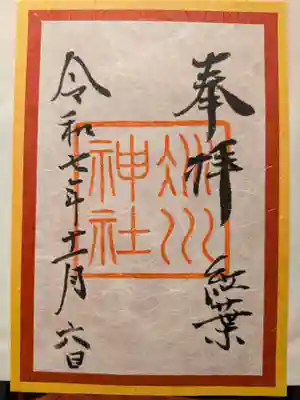 奉拝 紅葉
氷川
神社
令和七年十二月六日